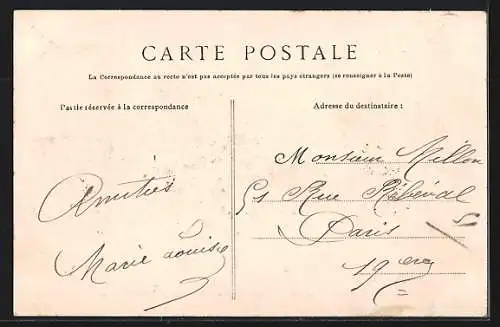 CARTE POSTALE
La Correspondance au recto n'est pas acceptée par tous les pays étrangers (se renseigner à la Poste)
Partie réservée à la correspondance
Adresse du destinataire :
Amitiés
Marie Louise
Monsieur Millon
Rue Rébeval
Paris
19